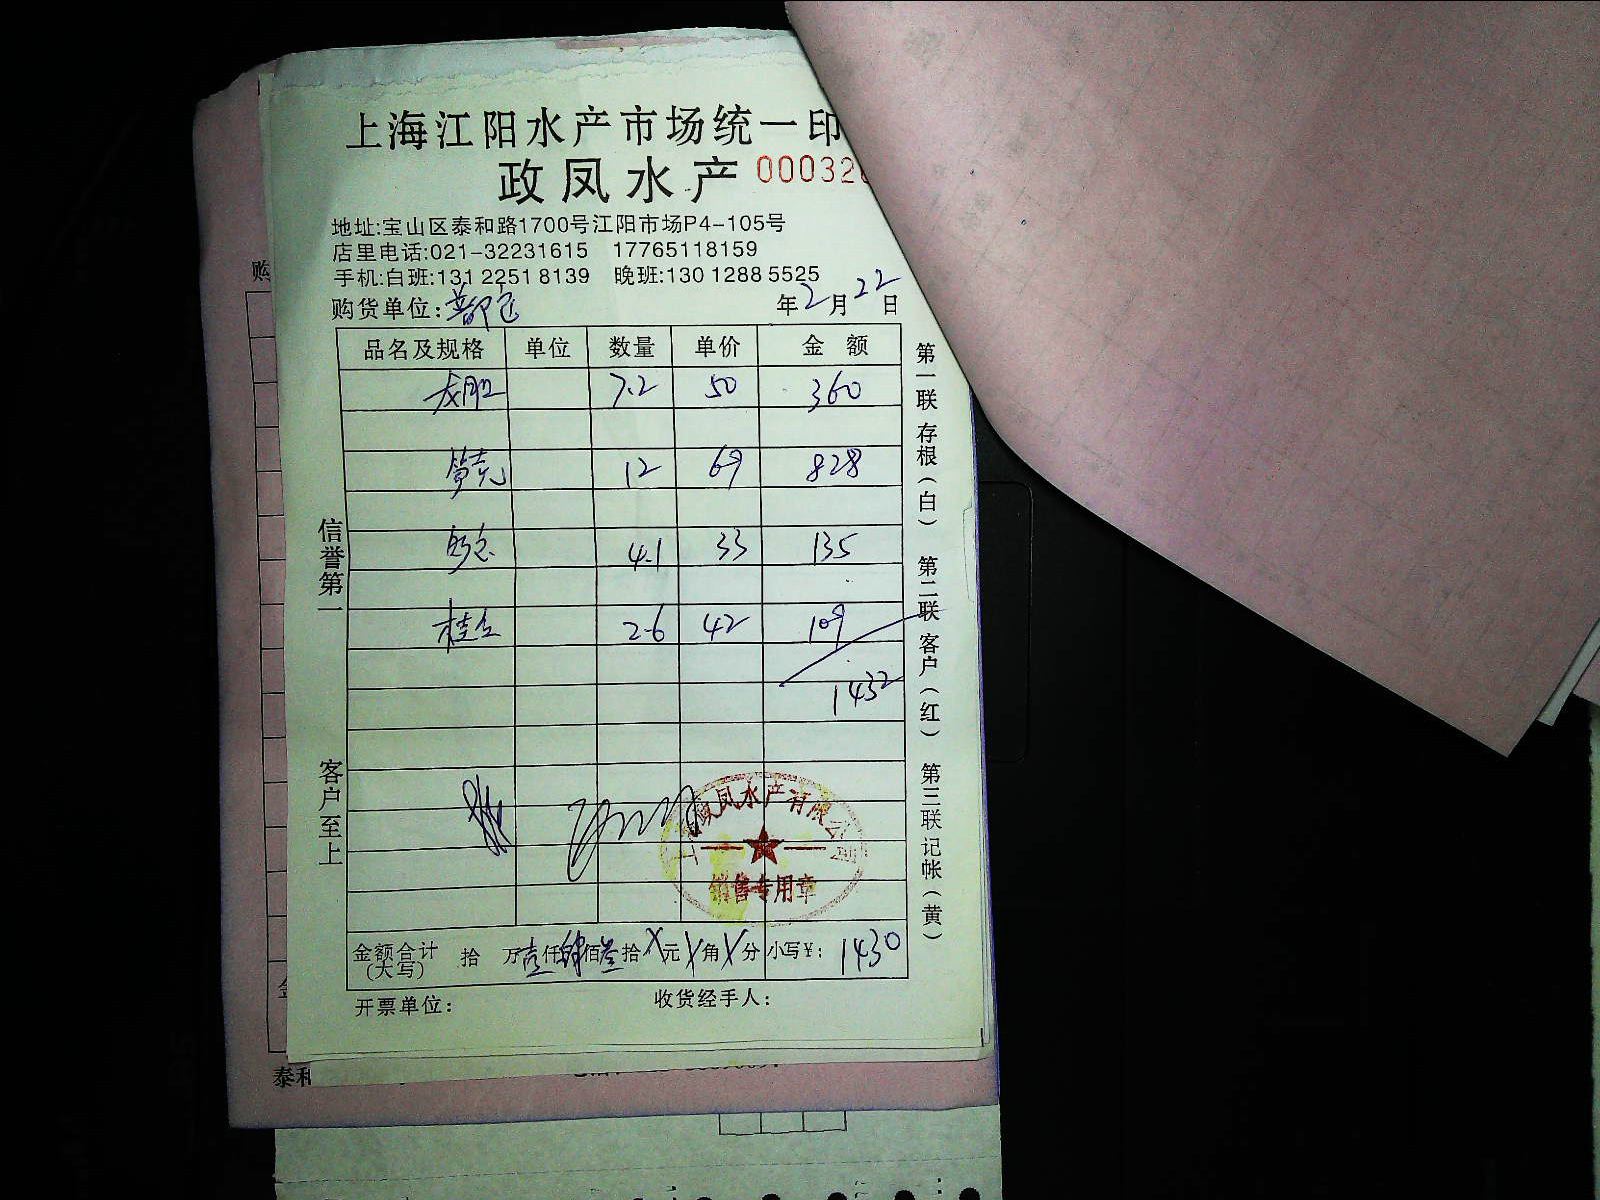 上海江阳水产市场统一印
政凤水产 00032
地址:宝山区泰和路1700号江阳市场P4-105号
店里电话:021-32231615 17765118159
手机:白班:131 2251 8139 晚班:130 1288 5525
购货单位:
年2月22日
品名及规格 单位 数量 单价 金额
7.2 50 360
笋壳 12 69 828
4.1 33 135
桂鱼 2.6 42 109
1432
金额合计(大写) 拾 万壹仟肆佰叁拾X元X角X分 小写¥: 1430
开票单位: 收货经手人:
信誉第一
客户至上
第一联存根(白) 第二联客户(红) 第三联记帐(黄)
政凤水产有限公司
销售专用章
购
泰和